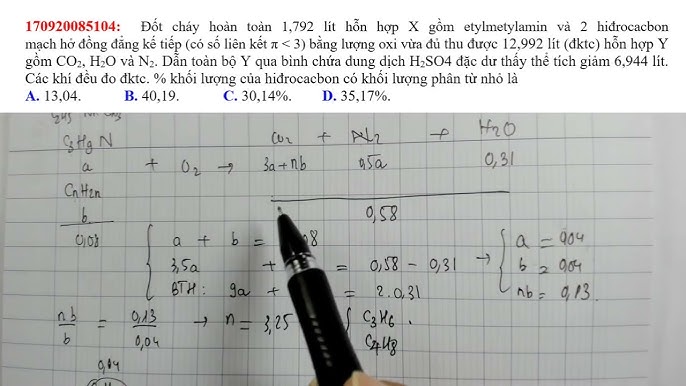 170920085104: Đốt cháy hoàn toàn 1,792 lít hỗn hợp X gồm etylmetylamin và 2 hiđrocacbon
mạch hở đồng đẳng kế tiếp (có số liên kết π < 3) bằng lượng oxi vừa đủ thu được 12,992 lít (đktc) hỗn hợp Y
gồm CO₂, H₂O và N₂. Dẫn toàn bộ Y qua bình chứa dung dịch H₂SO4 đặc dư thấy thể tích giảm 6,944 lít.
Các khí đều đo đktc. % khối lượng của hiđrocacbon có khối lượng phân tử nhỏ là
A. 13,04. B. 40,19. C. 30,14%. D. 35,17%.
C₃H₉N CO₂ + N₂ + H₂O
a + O₂ → 3a+nb 0,5a 0,31
CnH2n
b 0,58
0,08 a + b = 08 a = 0,04
3,5a + = 0,58 - 0,31 → b = 0,04
BTH: 9a + = 2.0,31 nb = 0,13.
nb/b = 0,13/0,04 → n = 3,25 C₃H₆.
C₄H₈
0,04